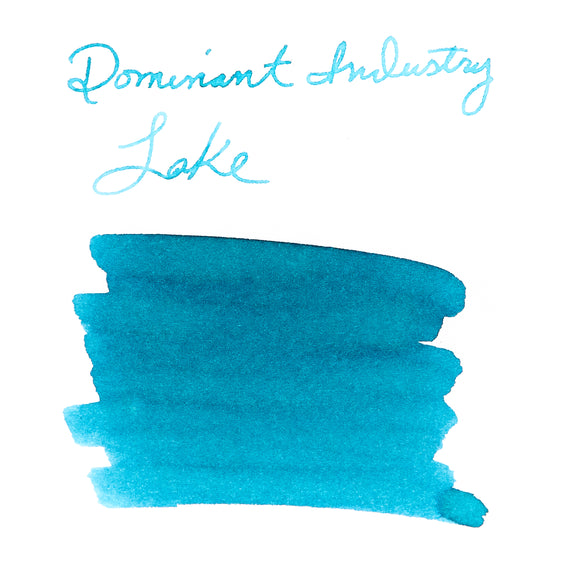 Dominant Industry
Lake